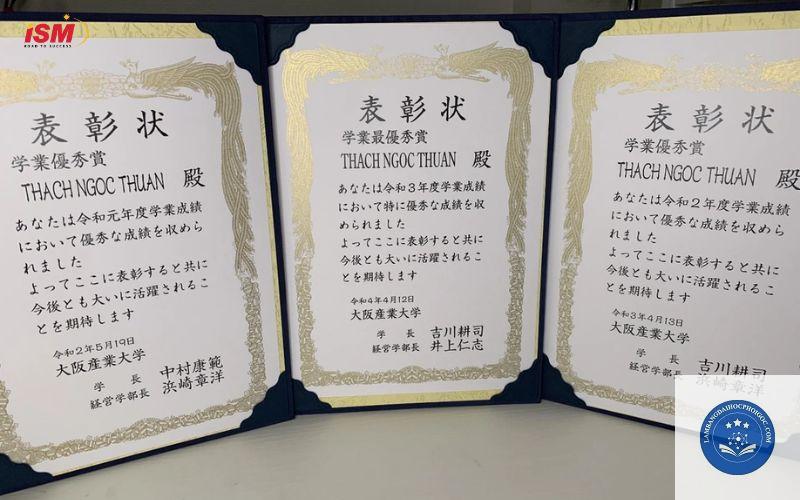 iSM
ROAD TO SUCCESS
表彰状
学業優秀賞
THACH NGOC THUAN 殿
あなたは令和元年度学業成績
において優秀な成績を収めら
れました
よってここに表彰すると共に
今後とも大いに活躍されるこ
とを期待します
令和2年5月19日
大阪産業大学
学長 中村康範
経営学部長 浜崎章洋
表彰状
学業最優秀賞
THACH NGOC THUAN 殿
あなたは令和3年度学業成績
において特に優秀な成績を収
められました
よってここに表彰すると共に
今後とも大いに活躍されるこ
とを期待します
令和4年4月12日
大阪産業大学
学長 吉川耕司
経営学部長 井上仁志
表彰状
学業優秀賞
THACH NGOC THUAN 殿
あなたは令和2年度学業成績
において優秀な成績を収めら
れました
よってここに表彰すると共に
今後とも大いに活躍されるこ
とを期待します
令和3年4月13日
大阪産業大学
学長 吉川耕司
経営学部長 浜崎章洋
LAMBANGDAIHOCPHOIGOC.COM